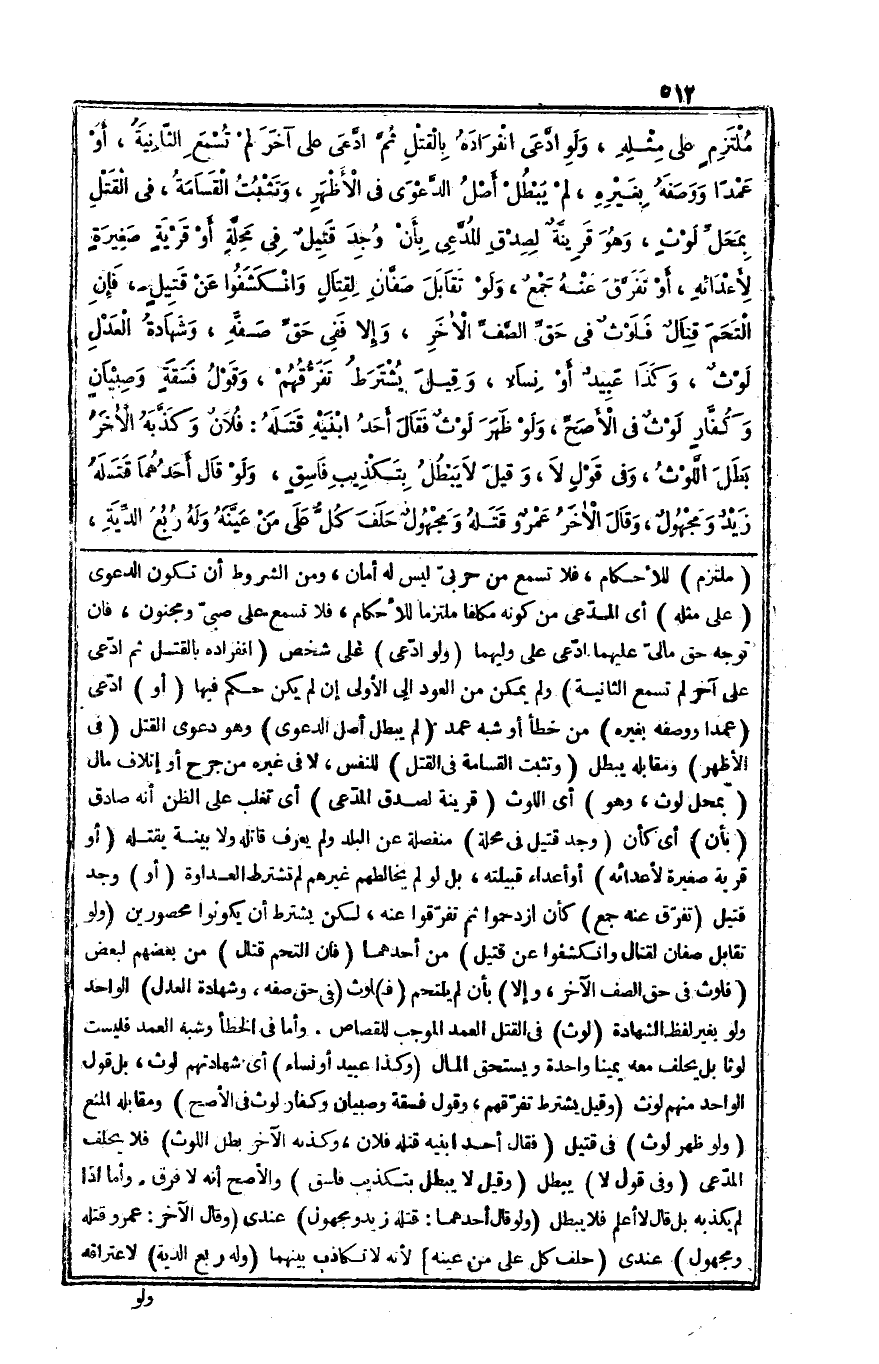 ٥١٢
مُلْتَزِمٍ عَلَى مِثْلِهِ ، وَلَوِ ادَّعَى انْفِرَادَهُ بِالْقَتْلِ ثُمَّ ادَّعَى عَلَى آخَرَ لَمْ تُسْمَعِ الثَّانِيَةُ ، أَوْ
عَمْدًا وَوَصَفَهُ بِغَيْرِهِ ، لَمْ يَبْطُلْ أَصْلُ الدَّعْوَى فِى الْأَظْهَرِ ، وَتَثْبُتُ الْقَسَامَةُ ، فِى الْقَتْلِ
بِمَحَلِّ لَوْثٍ ، وَهُوَ قَرِينَةٌ لِصِدْقِ المُدَّعِى بِأَنْ وُجِدَ قَتِيلٌ فِى مَحَلَّةٍ أَوْ قَرْيَةٍ صَغِيرَةٍ
لِأَعْدَائِهِ ، أَوْ تَفَرَّقَ عَنْهُ جَمْعٌ ، وَلَوْ تَقَابَلَ صَفَّانِ لِقِتَالٍ وَانْكَشَفُوا عَنْ قَتِيلٍ ، فَإِنِ
الْتَحَمَ قِتَالٌ فَلَوْثٌ فِى حَقِّ الصَّفِّ الْآخَرِ ، وَإِلَّا فَفِى حَقِّ صَفِّهِ ، وَشَهَادَةُ الْعَدْلِ
لَوْثٌ ، وَكَذَا عَبِيدٌ أَوْ نِسَاءٌ ، وَقِيلَ يُشْتَرَطُ تَفَرُّقُهُمْ ، وَقَوْلُ فَسَقَةٍ وَصِبْيَانٍ
وَكُفَّارٍ لَوْثٌ فِى الْأَصَحِّ ، وَلَوْ ظَهَرَ لَوْثٌ فَقَالَ أَحَدُ ابْنَيْهِ قَتَلَهُ : فُلَانٌ وَكَذَّبَهُ الْآخَرُ
بَطَلَ اللَّوْثُ ، وَفِى قَوْلٍ لَا ، وَقِيلَ لَا يَبْطُلُ بِتَكْذِيبِ فَاسِقٍ ، وَلَوْ قَالَ أَحَدُهُمَا قَتَلَهُ
زَيْدٌ وَمَجْهُولٌ ، وَقَالَ الْآخَرُ عَمْرٌو قَتَلَهُ وَمَجْهُولٌ حَلَفَ كُلٌّ عَلَى مَنْ عَيَّنَهُ وَلَهُ رُبُعُ الدِّيَةِ ،
( ملتزم ) للأحكام ، فلا تسمع من حربىّ ليس له أمان ، ومن الشروط أن تكون الدعوى
( على مثله ) أى المدّعى من كونه مكلفا ملتزما للأحكام ، فلا تسمع على صبىّ ومجنون ، فان
توجه حق مالىّ عليهما ادّعى على وليهما ( ولو ادّعى ) على شخص ( انفراده بالقتل ثم ادّعى
على آخر لم تسمع الثانية ) ولم يمكن من العود الى الأولى إن لم يكن حكم فيها ( أو ) ادّعى
( عمدا ووصفه بغيره ) من خطأ أو شبه عمد ( لم يبطل أصل الدعوى ) وهو دعوى القتل ( فى
الأظهر ) ومقابله يبطل ( وتثبت القسامة فى القتل ) للنفس ، لا فى غيره من جرح أو إتلاف مال
( بمحل لوث ، وهو ) أى اللوث ( قرينة لصدق المدّعى ) أى تغلب على الظن أنه صادق
( بأن ) أى كأن ( وجد قتيل فى محلة ) منفصلة عن البلد ولم يعرف قاتله ولا بينة بقتله ( أو
قرية صغيرة لأعدائه ) أو أعداء قبيلته ، بل لو لم يخالطهم غيرهم لم تشترط العداوة ( أو ) وجد
قتيل ( تفرّق عنه جمع ) كأن ازدحموا ثم تفرّقوا عنه ، لكن يشترط أن يكونوا محصورين ( ولو
تقابل صفان لقتال وانكشفوا عن قتيل ) من أحدهما ( فان التحم قتال ) من بعضهم لبعض
( فلوث فى حق الصف الآخر ، وإلا ) بأن لم يلتحم ( فـ)لوث ( فى حق صفه ، وشهادة العدل ) الواحد
ولو بغير لفظ الشهادة ( لوث ) فى القتل العمد الموجب للقصاص . وأما فى الخطأ وشبه العمد فليست
لوثا بل يحلف معه يمينا واحدة ويستحق المال ( وكذا عبيد أو نساء ) أى شهادتهم لوث ، بل قول
الواحد منهم لوث ( وقيل يشترط تفرّقهم ، وقول فسقة وصبيان وكفار لوث فى الأصح ) ومقابله المنع
( ولو ظهر لوث ) فى قتيل ( فقال أحد ابنيه قتله فلان ، وكذبه الآخر بطل اللوث ) فلا يحلف
المدّعى ( وفى قول لا ) يبطل ( وقيل لا يبطل بتكذيب فاسق ) والأصح أنه لا فرق . وأما اذا
لم يكذبه بل قال لا أعلم فلا يبطل ( ولو قال أحدهما : قتله زيد ومجهول ) عندى ( وقال الآخر : عمرو قتله
ومجهول ) عندى ( حلف كل على من عينه ] لأنه لا تكاذب بينهما ( وله ربع الدية ) لاعترافه
ولو